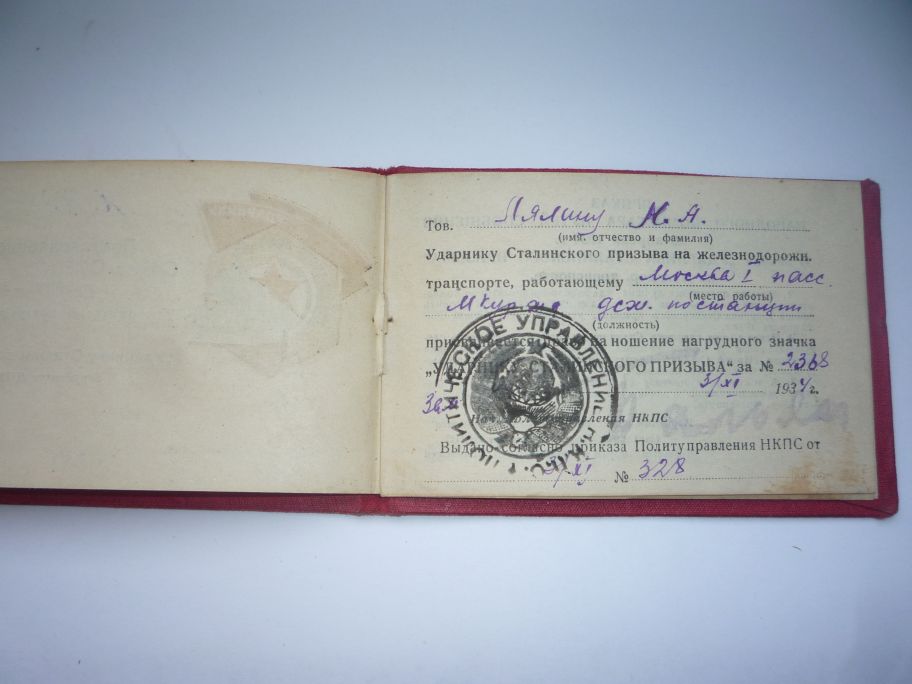 Тов. Лялину Н. А.
(имя, отчество и фамилия)
Ударнику Сталинского призыва на железнодорожн.
транспорте, работающему Москва I пасс.
(место работы)
деж. по станции
(должность)
присваивается право на ношение нагрудного значка
„УДАРНИКУ СТАЛИНСКОГО ПРИЗЫВА“ за № 2368
3/XI 1934 г.
Зам
Нач. Политуправления НКПС
Выдано согласно приказа Политуправления НКПС от
3/XI № 328
ПОЛИТИЧЕСКОЕ УПРАВЛЕНИЕ Н.К.П.С.